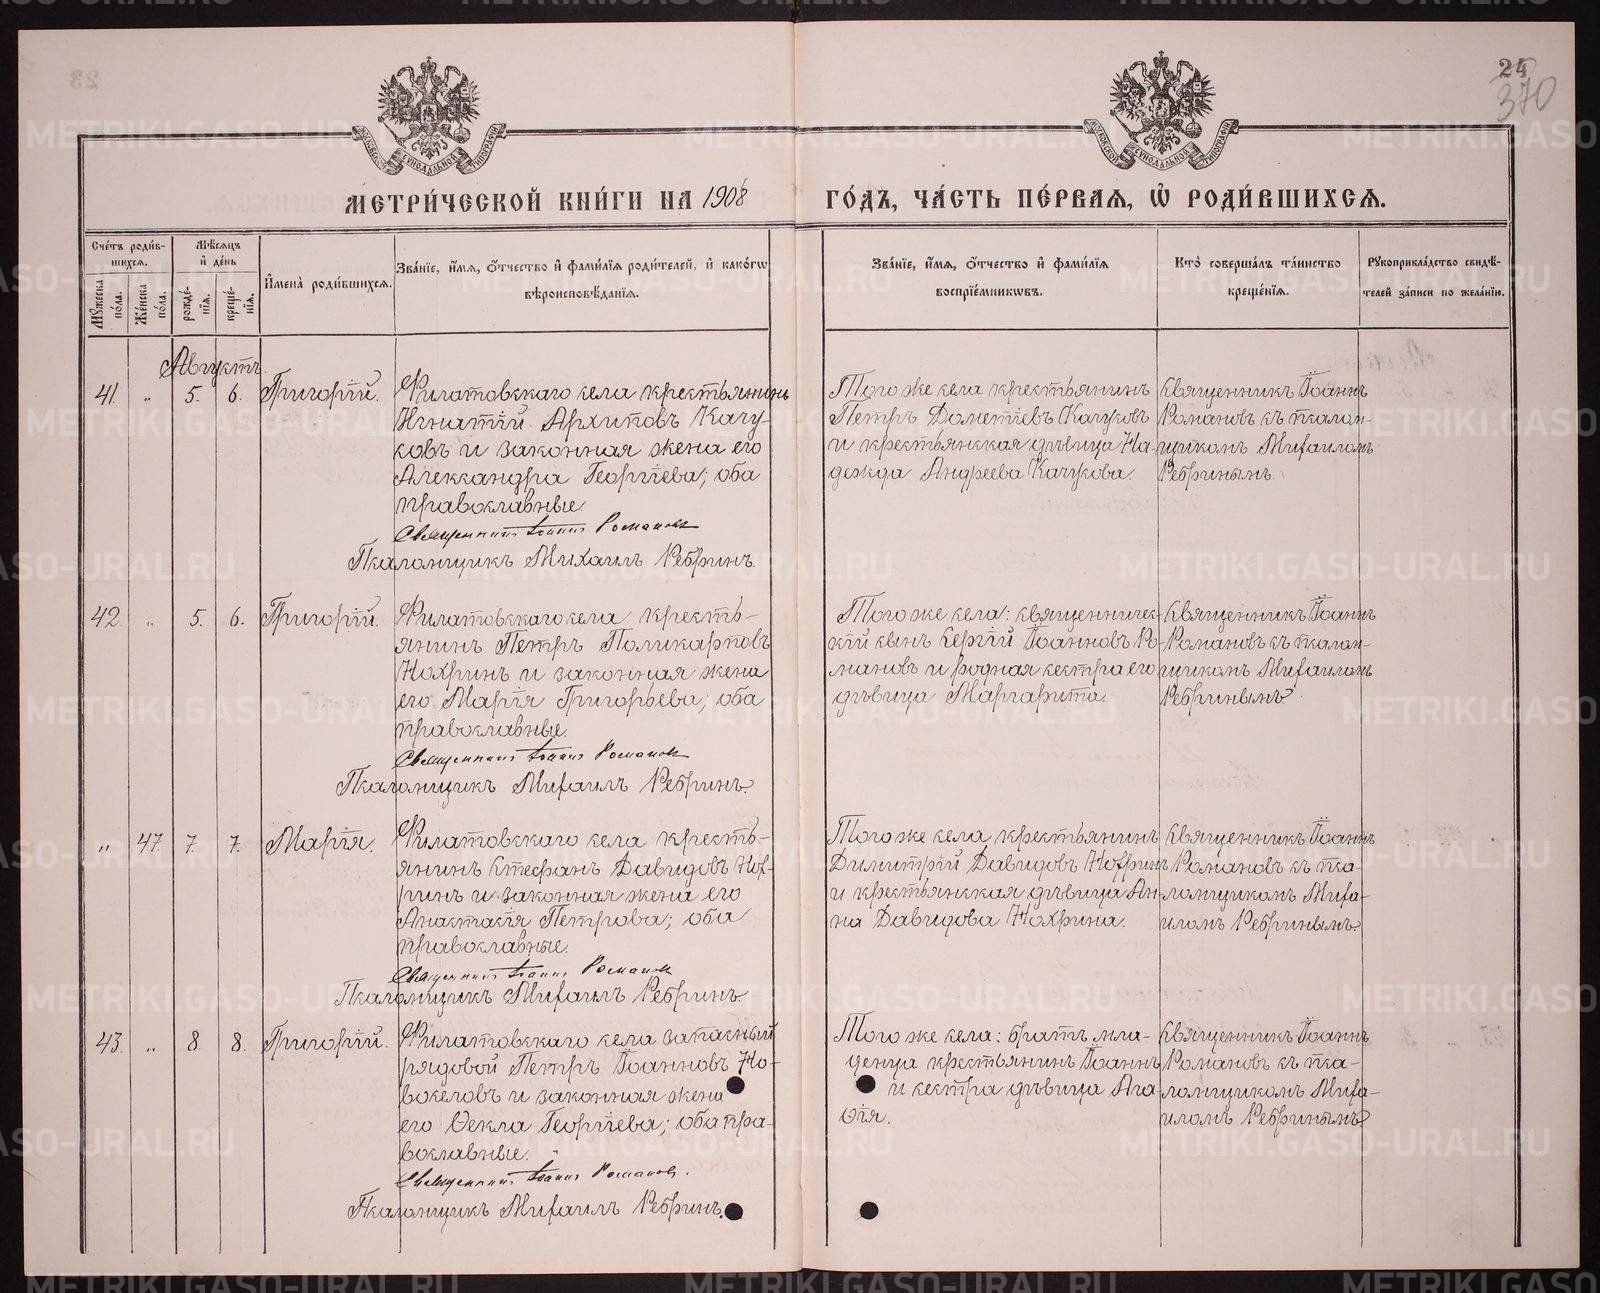 24
370
МЕТРИ́ЧЕСКОЙ КНИ́ГИ НА 1908 ГО́ДЪ, ЧА́СТЬ ПЕ́РВАЯ, Ѡ҆ РОДИ́ВШИХСЯ.
Сче́тъ роди́вшихся.
Му́жеска по́ла.
Же́нска по́ла.
Мѣ́сяцъ и҆ де́нь
рожде́нїя.
креще́нїя.
И҆мена̀ роди́вшихся.
Зва́нїе, и҆́мя, ѻ҆́тчество и҆ фами́лїя роди́телей, и҆ како́гѡ
вѣроисповѣ́данїя.
Зва́нїе, и҆́мя, ѻ҆́тчество и҆ фами́лїя
воспрїе́мникѡвъ.
Кто̀ соверша́лъ та́инство
креще́нїя.
Рꙋкоприкла́дство свидѣ́-
телей за́писи по жела́нїю.
Августъ.
41. „ 5. 6. Григорій.
Филатовскаго села крестьянинъ
Игнатій Архиповъ Качу-
ковъ и законная жена его
Александра Георгіева; оба
православные.
Священникъ Іоаннъ Романовъ
Псаломщикъ Михаилъ Ребринъ.
Того же села крестьянинъ
Петръ Дометіевъ Качуковъ
и крестьянская дѣвица На-
дежда Андреева Качукова.
Священникъ Іоаннъ
Романовъ съ псалом-
щикомъ Михаиломъ
Ребринымъ.
42. „ 5. 6. Григорій.
Филатовскаго села кресть-
янинъ Петръ Поликарповъ
Нохринъ и законная жена
его Марія Григорьева; оба
православные.
Священникъ Іоаннъ Романовъ
Псаломщикъ Михаилъ Ребринъ.
Того же села: священничес-
кій сынъ Сергій Іоанновъ Ро-
мановъ и родная сестра его
дѣвица Маргарита.
Священникъ Іоаннъ
Романовъ съ псалом-
щикомъ Михаиломъ
Ребринымъ.
„ 47. 7. 7. Марія.
Филатовскаго села кресть-
янинъ Стефанъ Давидовъ Нох-
ринъ и законная жена его
Анастасія Петрова; оба
православные.
Священникъ Іоаннъ Романовъ
Псаломщикъ Михаилъ Ребринъ
Того же села крестьянинъ
Димитрій Давидовъ Нохринъ
и крестьянская дѣвица Ан-
на Давидова Нохрина.
Священникъ Іоаннъ
Романовъ съ пса-
ломщикомъ Миха-
иломъ Ребринымъ.
43. „ 8. 8. Григорій.
Филатовскаго села запасный
рядовой Петръ Іоанновъ Но-
воселовъ и законная жена
его Ѳекла Георгіева; оба пра-
вославные.
Священникъ Іоаннъ Романовъ.
Псаломщикъ Михаилъ Ребринъ.
Того же села: братъ мла-
денца крестьянинъ Іоаннъ
и сестра дѣвица Ага-
ѳія.
Священникъ Іоаннъ
Романовъ съ пса-
ломщикомъ Миха-
иломъ Ребринымъ